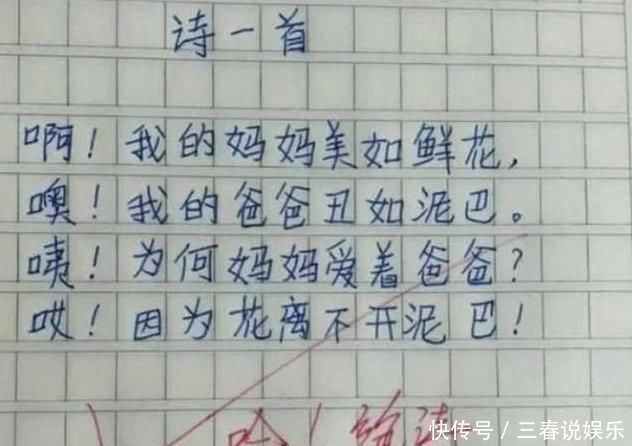 诗一首
啊！我的妈妈美如鲜花，
噢！我的爸爸丑如泥巴。
咦！为何妈妈爱着爸爸？
哎！因为花离不开泥巴！
快传号／三春说娱乐